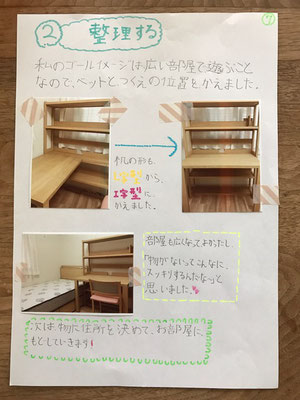 ② 整理する
私のゴールイメージは広い部屋で遊ぶこと
なので、ベットとつくえの位置をかえました。
机の形も、
L字型から、
I字型に
かえました。
部屋も広くなってよかったし、
「物がないってこんなに、
スッキリするんだな〜」と
思いました。
次は、物に住所を決めて、お部屋に、
もどしていきます!